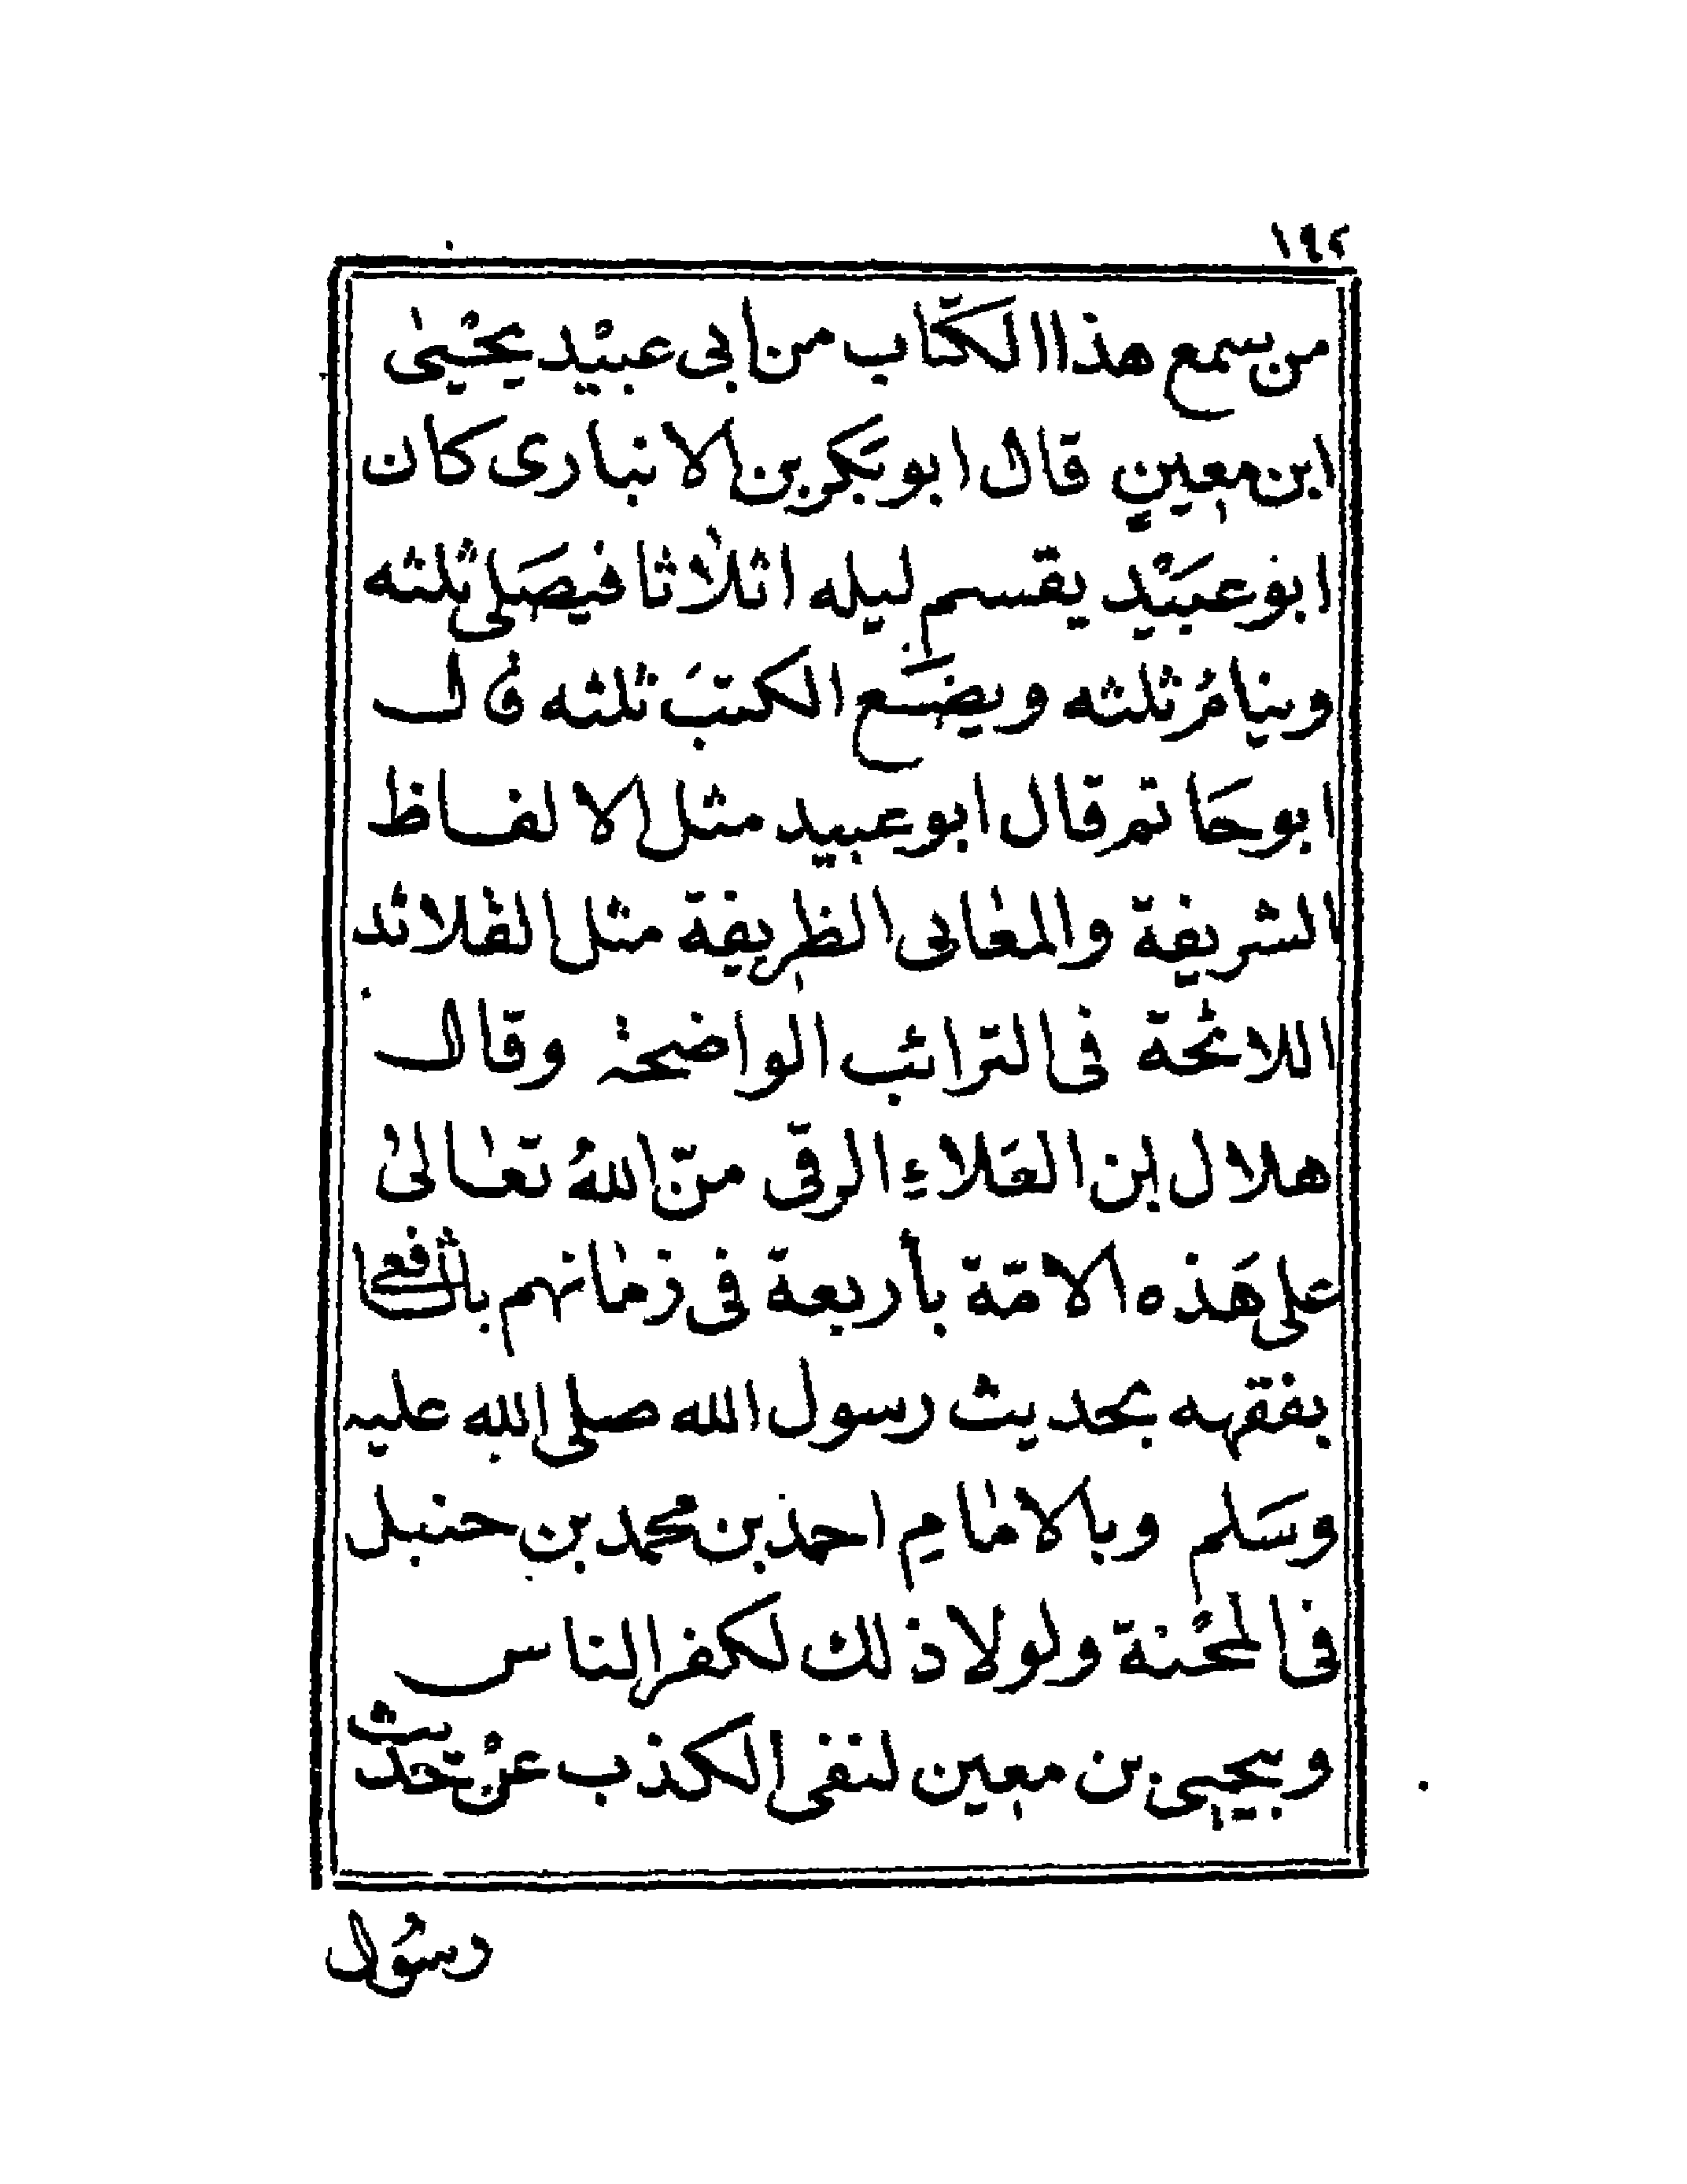 ١٩٢
من سمع هذا الكتاب من أبى عبيد يحيى
ابن معين قال ابو بكر بن الانبارى كان
ابو عبيد يقسم ليله اثلاثا فيصلى ثلثه
وينام ثلثه ويضع الكتب ثلثه قال
ابو حاتم قال ابو عبيد مثل الالفاظ
الشريفة والمعانى الظريفة مثل القلائد
اللائحة فى الترائب الواضحة وقال
هلال ابن العلاء الرقى منّ الله تعالى
على هذه الامّة بأربعة فى زمانهم بالشافعى
بفقهه بحديث رسول الله صلى الله عليه
وسلم وبالامام احمد بن محمد بن حنبل
فى المحنة ولولا ذلك لكفر الناس
وبيحيى بن معين لنفى الكذب عن حديث
رسُول